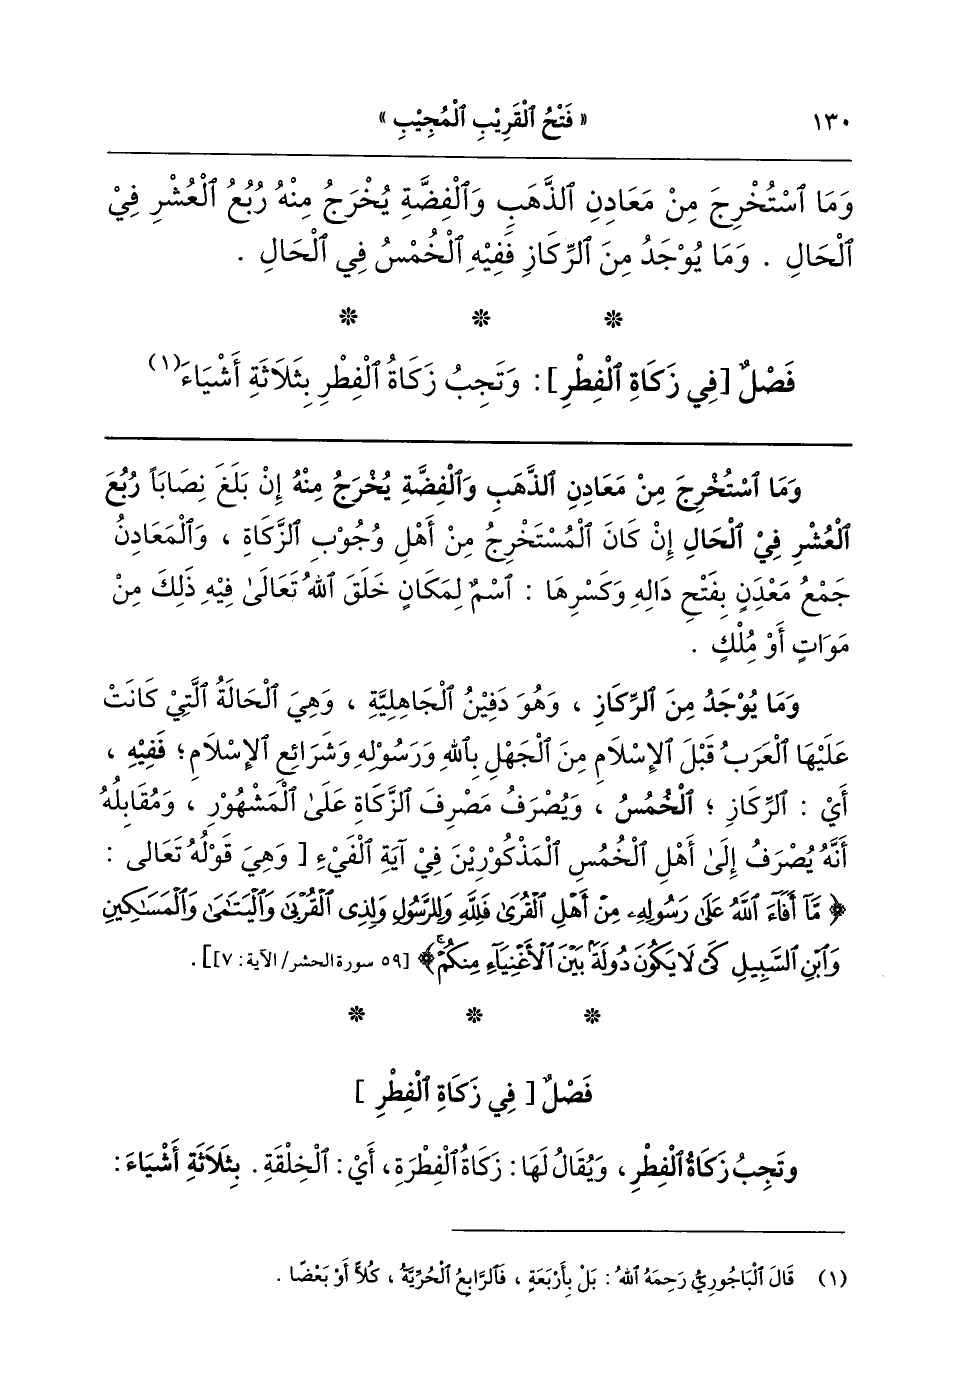 ١٣٠ « فَتْحُ ٱلْقَرِيْبِ ٱلْمُجِيْبِ »
وَمَا ٱسْتُخْرِجَ مِنْ مَعَادِنِ ٱلذَّهَبِ وَٱلْفِضَّةِ يُخْرَجُ مِنْهُ رُبُعُ ٱلْعُشْرِ فِيْ
ٱلْحَالِ . وَمَا يُوْجَدُ مِنَ ٱلرِّكَازِ فَفِيْهِ ٱلْخُمْسُ فِي ٱلْحَالِ .
* * *
فَصْلٌ [فِي زَكَاةِ ٱلْفِطْرِ] : وَتَجِبُ زَكَاةُ ٱلْفِطْرِ بِثَلَاثَةِ أَشْيَاءَ(١)
وَمَا ٱسْتُخْرِجَ مِنْ مَعَادِنِ ٱلذَّهَبِ وَٱلْفِضَّةِ يُخْرَجُ مِنْهُ إِنْ بَلَغَ نِصَابَاً رُبُعَ
ٱلْعُشْرِ فِيْ ٱلْحَالِ إِنْ كَانَ ٱلْمُسْتَخْرِجُ مِنْ أَهْلِ وُجُوْبِ ٱلزَّكَاةِ ، وَٱلْمَعَادِنُ
جَمْعُ مَعْدَِنٍ بِفَتْحِ دَالِهِ وَكَسْرِهَا : ٱسْمٌ لِمَكَانٍ خَلَقَ ٱللهُ تَعَالَىٰ فِيْهِ ذَلِكَ مِنْ
مَوَاتٍ أَوْ مِلْكٍ .
وَمَا يُوْجَدُ مِنَ ٱلرِّكَازِ ، وَهُوَ دَفِيْنُ ٱلْجَاهِلِيَّةِ ، وَهِيَ ٱلْحَالَةُ ٱلَّتِيْ كَانَتْ
عَلَيْهَا ٱلْعَرَبُ قَبْلَ ٱلإِسْلَامِ مِنَ ٱلْجَهْلِ بِٱللهِ وَرَسُوْلِهِ وَشَرَائِعِ ٱلإِسْلَامِ؛ فَفِيْهِ ،
أَيْ : ٱلرِّكَازِ ؛ ٱلْخُمُسُ ، وَيُصْرَفُ مَصْرِفَ ٱلزَّكَاةِ عَلَىٰ ٱلْمَشْهُوْرِ ، وَمُقَابِلُهُ
أَنَّهُ يُصْرَفُ إِلَىٰ أَهْلِ ٱلْخُمُسِ ٱلْمَذْكُورِيْنَ فِيْ آيَةِ ٱلْفَيْءِ [ وَهِيَ قَوْلُهُ تَعَالى :
﴿ مَّآ أَفَآءَ ٱللَّهُ عَلَىٰ رَسُولِهِۦ مِنْ أَهْلِ ٱلْقُرَىٰ فَلِلَّهِ وَلِلرَّسُولِ وَلِذِى ٱلْقُرْبَىٰ وَٱلْيَتَٰمَىٰ وَٱلْمَسَٰكِينِ
وَٱبْنِ ٱلسَّبِيلِ كَىْ لَا يَكُونَ دُولَةًۢ بَيْنَ ٱلْأَغْنِيَآءِ مِنكُمْۚ ﴾ [٥٩ سورة الحشر/ الآية: ٧]] .
* * *
فَصْلٌ [ فِي زَكَاةِ ٱلْفِطْرِ ]
وتَجِبُ زَكَاةُ ٱلْفِطْرِ ، وَيُقَالُ لَهَا : زَكَاةُ ٱلْفِطْرَةِ، أَيْ : ٱلْخِلْقَةِ . بِثَلَاثَةِ أَشْيَاءَ :
(١) قَالَ ٱلْبَاجُورِيُّ رَحِمَهُ ٱللهُ : بَلْ بِأَرْبَعَةٍ ، فَٱلرَّابِعُ ٱلْحُرِّيَّةُ ، كُلاًّ أَوْ بَعْضًا .